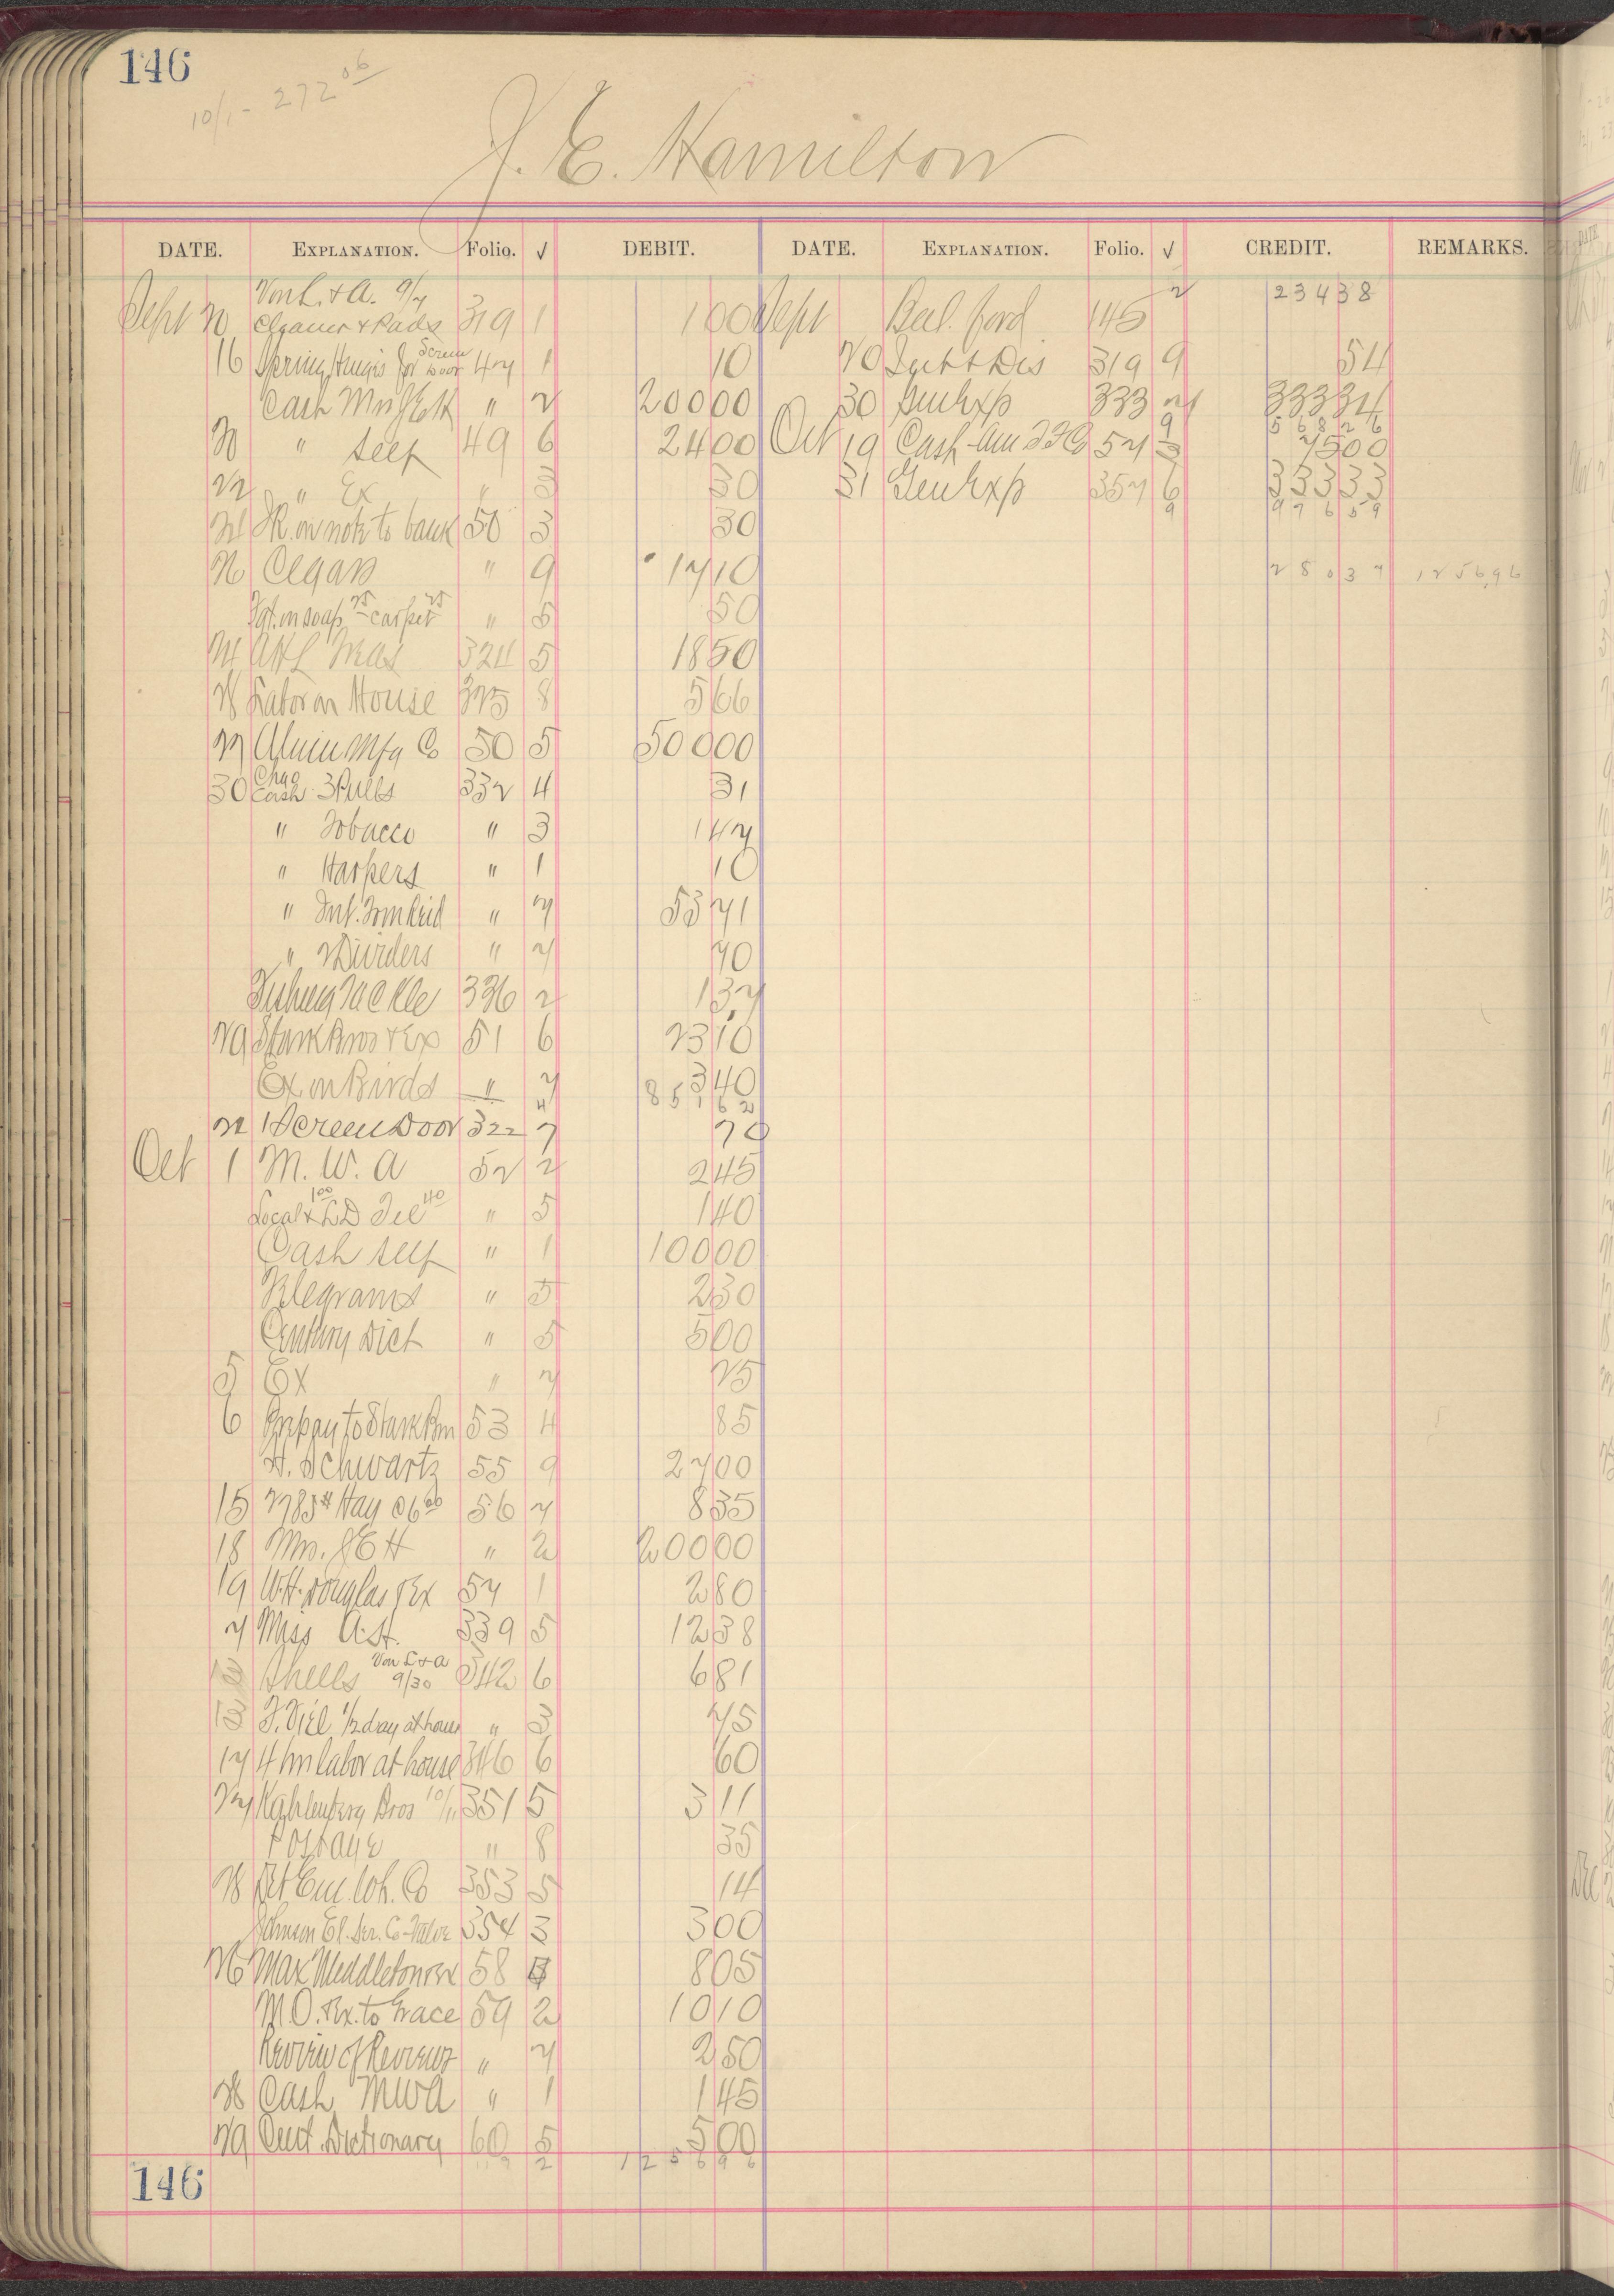 146
10/1 - 272 06
J. E. Hamilton
DATE. EXPLANATION. Folio. √ DEBIT. DATE. EXPLANATION. Folio. √ CREDIT. REMARKS.
Von L. & A. 9/7
Sept 20 Cleaner & Pads 319 1 1 00 Sept Bal. ford 145 2 234 38
16 Spring Hinges for Screen Door 47 1 10 20 Int & Dis 319 9 54
Cash Mrs JEH " 2 200 00 30 Gen Exp 333 2 333 34
9 568 26
20 " Self 49 6 24 00 Oct 19 Cash 57 3 75 00
22 " Ex " 3 30 31 Gen Exp 357 6 333 33
9 976 59
on note to bank 50 3 30
26 Cigars " 9 17 10 280 37 1256 96
Fgt. on soap 25 - carpet 25 " 5 50
24 324 5 18 50
28 Labor on House 325 8 5 66
27 Alum Mfg Co 50 5 500 00
30 Chgo Cash 3 Pulls 332 4 31
" Tobacco " 3 1 47
" Harpers " 1 10
" Int. " 7 53 71
" Dividers " 7 70
Fishing Tackle 336 2 1 37
29 Stark Bros & Ex 51 6 23 10
Ex on Birds " 7 3 40
4 851 62
22 1 Screen Door 322 7 70
Oct 1 M. W. A 52 2 2 45
Local 1 00 & LD Tel 40 " 5 1 40
Cash Self " 1 100 00
Telegrams " 5 2 30
Century Dict " 5 5 00
5 Ex " 7 25
6 Prepay to Stark Bros 53 4 85
H. Schwartz 55 9 27 00
15 2785# Hay @ 6 00 56 7 8 35
18 Mrs. JEH " 2 200 00
19 W.H. Douglas & Ex 57 1 2 80
7 Miss A.H. 339 5 12 38
12 Shells Von L & A 9/30 342 6 6 81
12 F. Viel 1/2 day at house " 3 75
17 4 hrs labor at house 346 6 60
27 Kahlenberg Bros 10/11 351 5 3 11
Postage " 8 35
28 353 5 14
Johnson El. Ser. Co - Valve 354 3 3 00
26 Max Meddleton & Ex 58 8 05
M.O. & Ex. to Grace 59 2 10 10
Review of Reviews " 7 2 50
28 Cash MWA " 1 1 45
29 Cent. Dictionary 60 5 5 00
2 1256 96
146